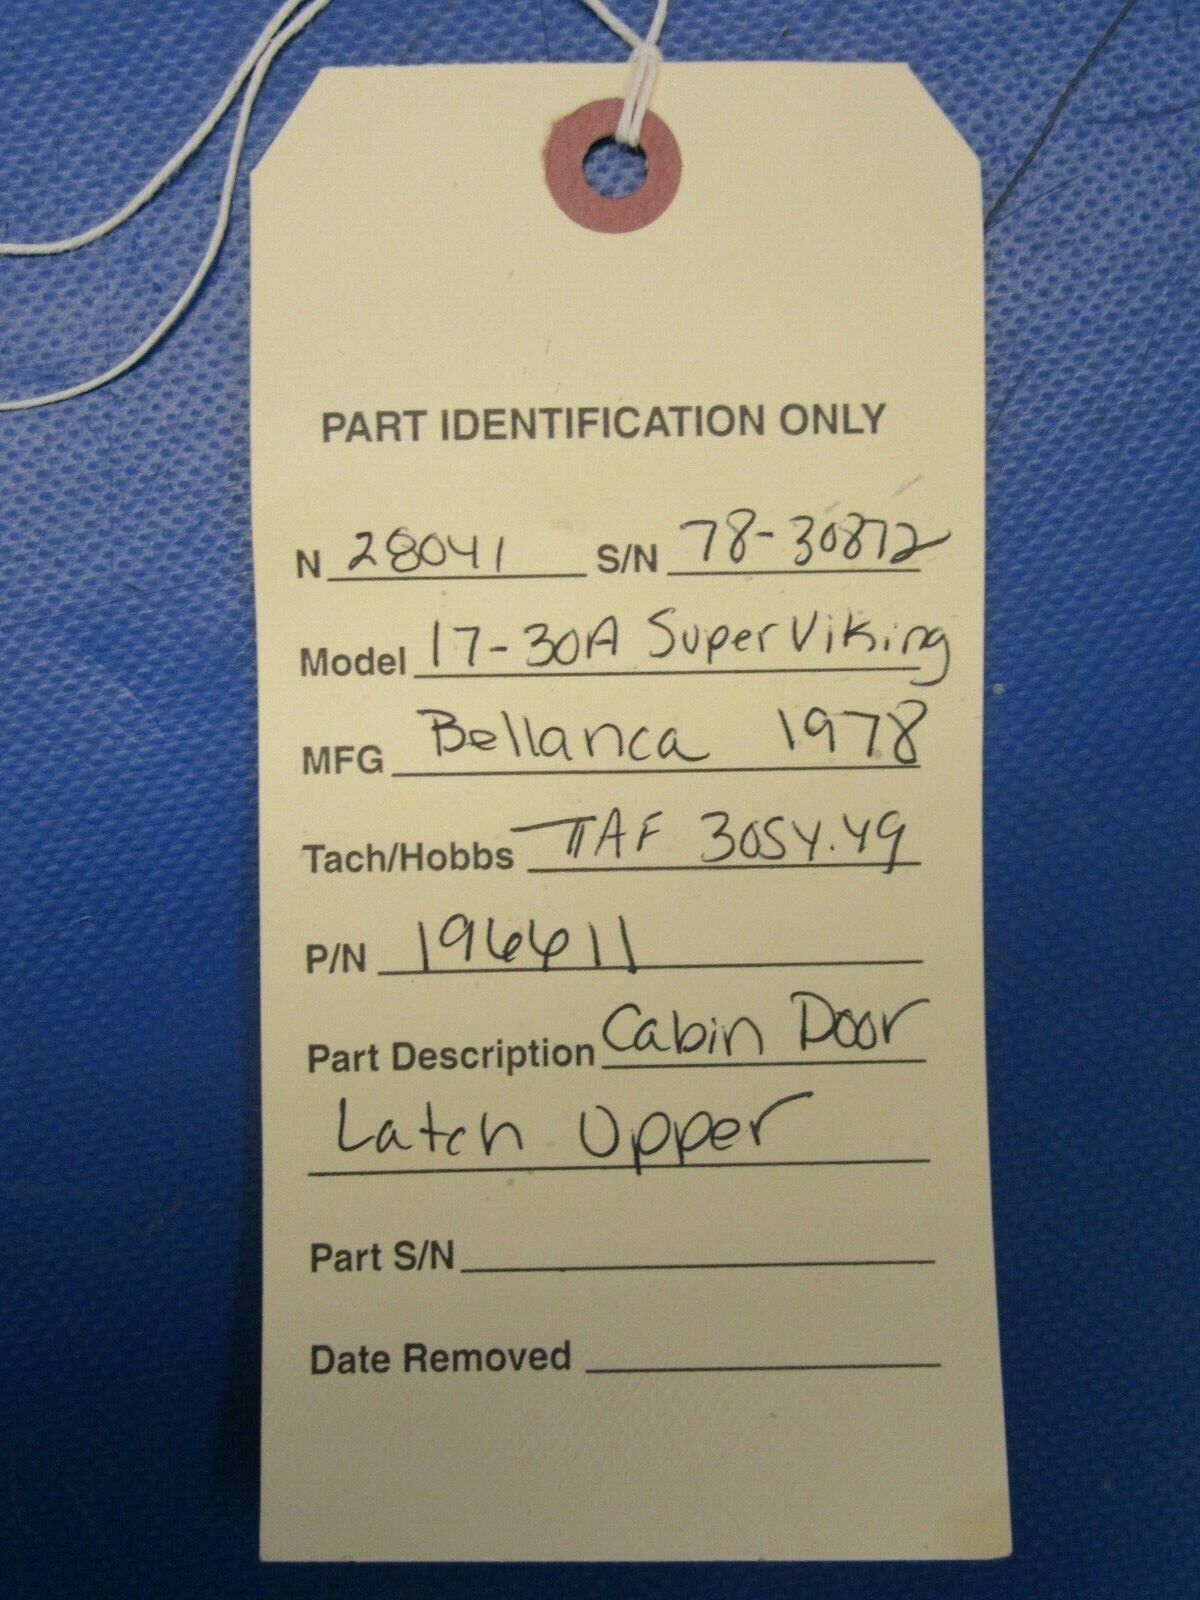 PART IDENTIFICATION ONLY
N 28041 S/N 78-30872
Model 17-30A Super Viking
MFG Bellanca 1978
Tach/Hobbs TTAF 3054.49
P/N 196611
Part Description Cabin Door
Latch Upper
Part S/N
Date Removed